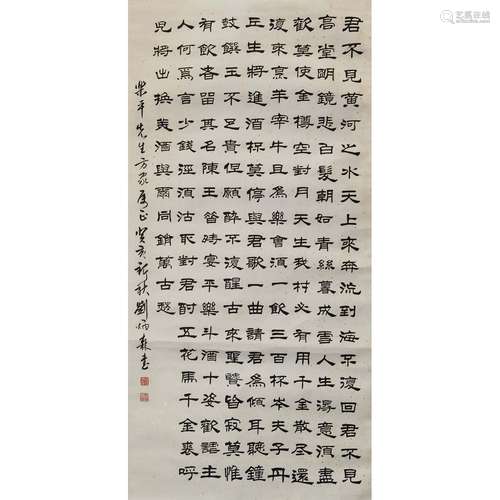 君不見黃河之水天上來奔流到海不復回君不見
高堂明鏡悲白髮朝如青絲暮成雪人生得意須盡
歡莫使金樽空對月天生我材必有用千金散盡還
復來烹羊宰牛且為樂會須一飲三百杯岑夫子丹
丘生將進酒杯莫停與君歌一曲請君為傾耳聽鐘
鼓饌玉不足貴但願醉不復醒古來聖賢皆寂莫惟
有飲者留其名陳王昔時宴平樂斗酒十恣歡謔主
人何為言少錢徑須沽取對君酌五花馬千金裘呼
兒將出換美酒與爾同銷萬古愁
樂平先生方家屬正 癸亥新秋劉炳森書